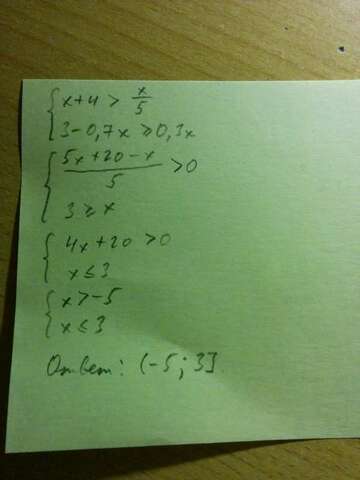 x+4 > x/5
3-0,7x ≥ 0,3x
(5x+20-x)/5 > 0
3 ≥ x
4x+20 > 0
x ≤ 3
x > -5
x ≤ 3
Ответ: (-5; 3].